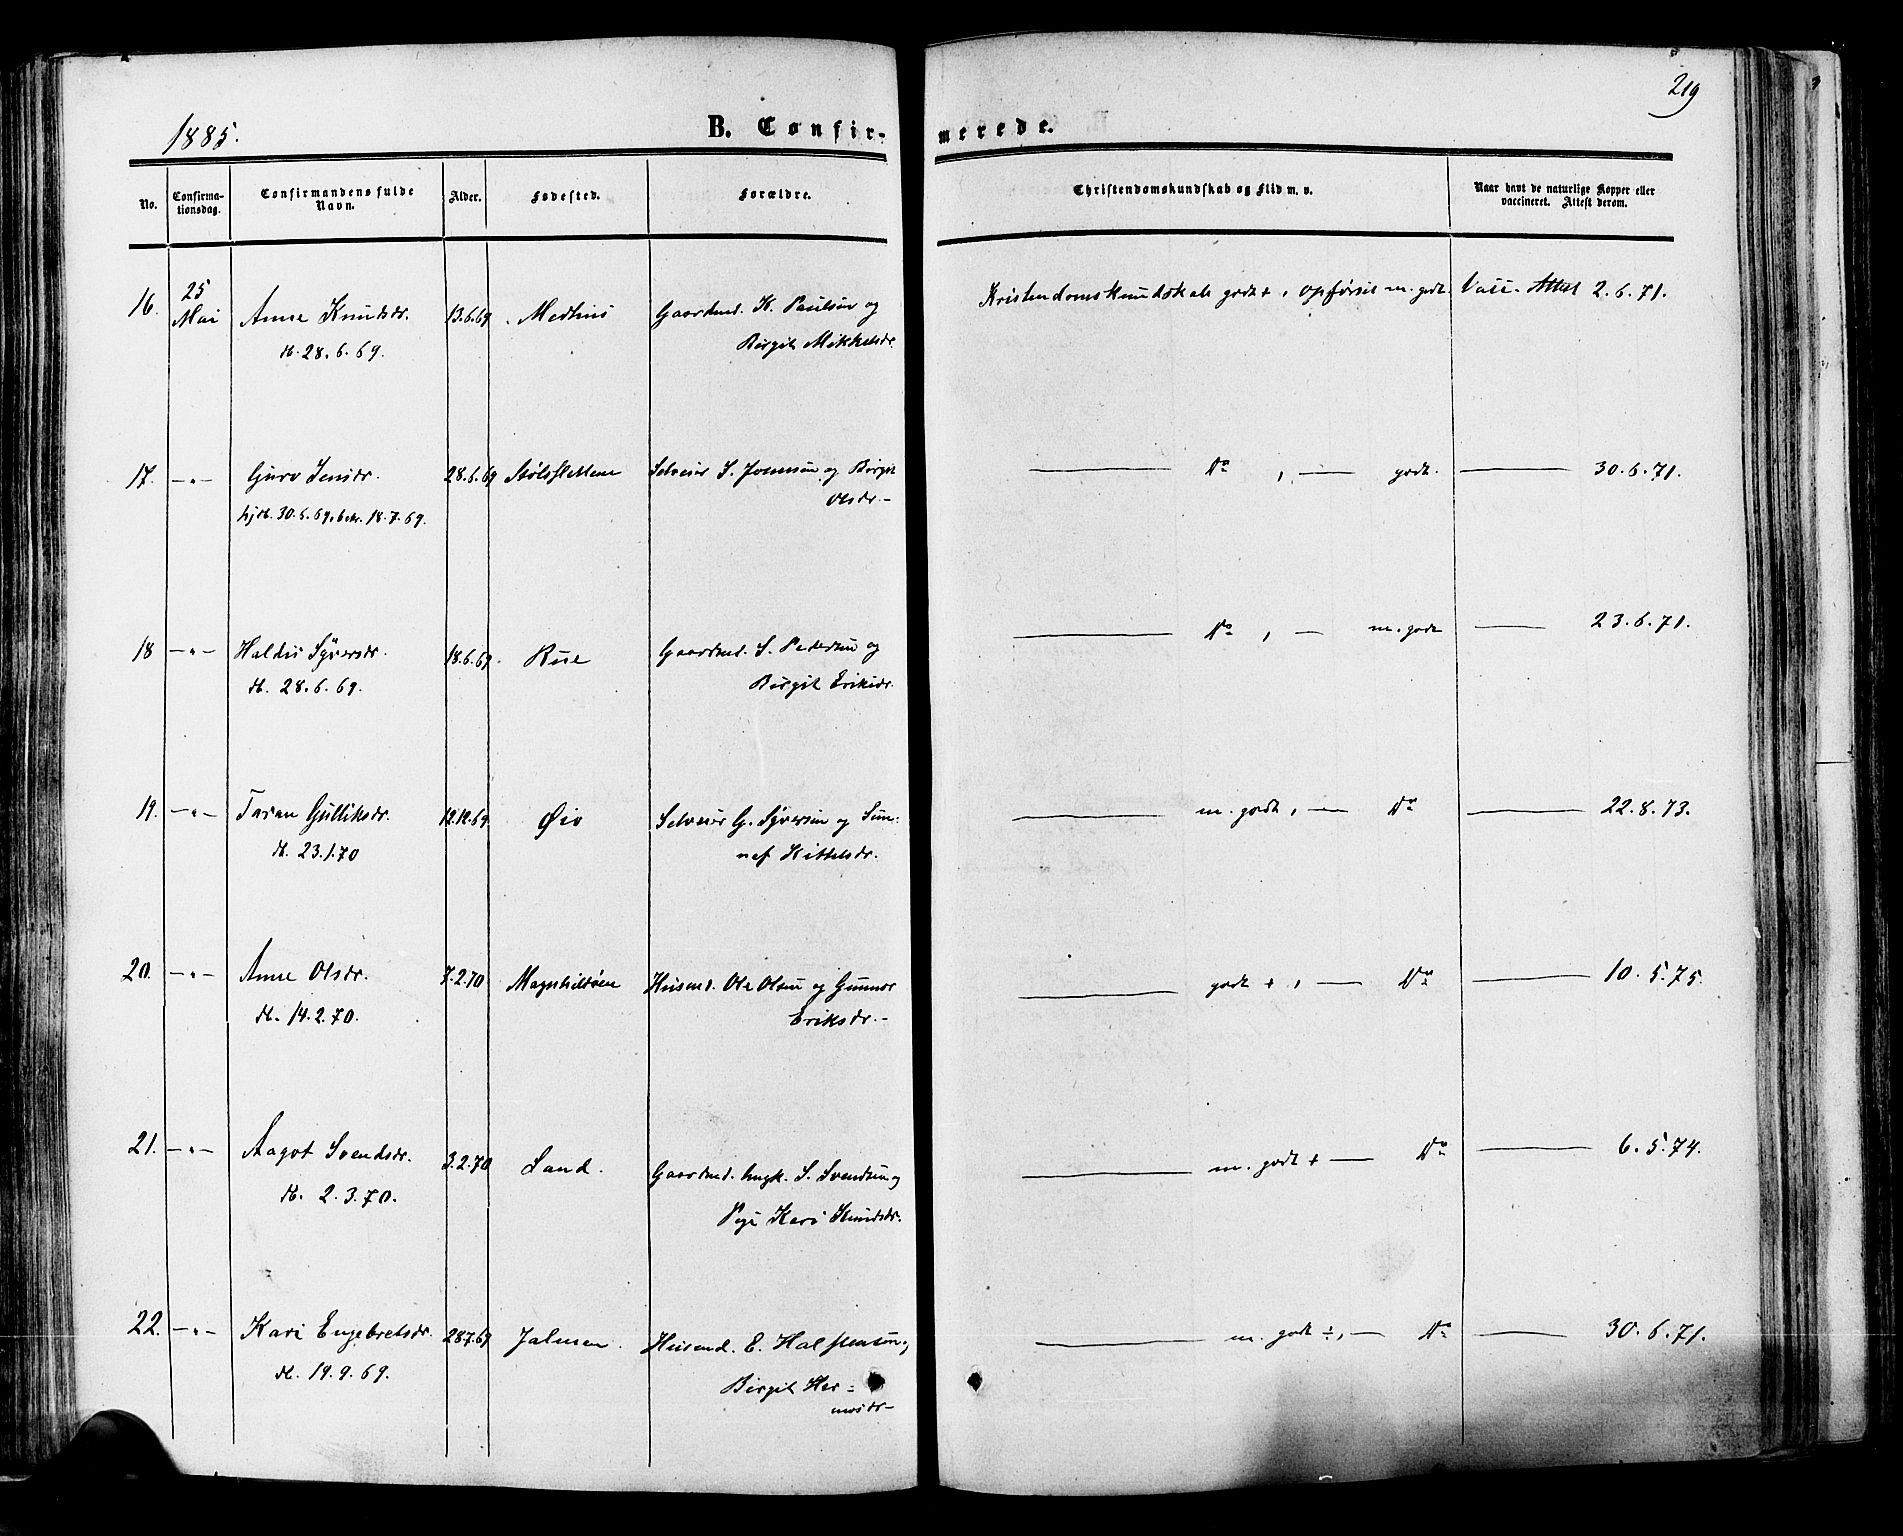 219
1885.
B. Confir-
merede.
No.
Confirma-
tionsdag.
Confirmandens fulde
Navn.
Alder.
Fødested.
Forældre.
Christendomskundskab og Flid m. v.
Naar havt de naturlige Kopper eller
vaccineret. Attest derom.
16. 25 Mai Anne Knudsdr. 13.6.69 Medhus Gaardmd. K. Paulsen og Kristendomskundskab godt +, opførsel m. godt. Vacc. Attest 2.6.71.
d. 28.6.69. Birgit Mikkelsdr.
17. –〃– Guro Jensdr. 28.6.69 Stølsslettene Selveier J. Jonsen og Birgit — Do, — godt. — 30.6.71.
hjd. 30.6.69, bekr. 18.7.69. Olsdr.–
18 –〃– Haldis Syversdr. 18.6.69. Rue Gaardmd. S. Pedersen og — Do, — m. godt — 23.6.71.
d. 28.6.69. Birgit Eriksdr.
19. –〃– Taran Gulliksdr. 12.12.69. Øio Selveier G. Syversen og Sun= — m. godt, — Do — 22.8.73.
d. 23.1.70 nef Kittelsdr.
20. –〃– Anne Olsdr. 7.2.70 Magnhildøen Husmd. Ole Olsen og Gunnor — godt +, — Do — 10.5.75.
d. 14.2.70. Eriksdr.–
21. –〃– Aagot Svendsdr. 3.2.70 Sand. Gaardmd. Ungk. S. Svendsen og — m. godt + — Do — 6.5.74.
d. 2.3.70. Pige Kari Knudsdr.
22. –〃– Kari Engebretsdr. 28.7.69 Jalmen. Husmd. E. Halstensen og — m. godt ÷, — Do — 30.6.71.
d. 19.9.69. Birgit Her=
mosdr–